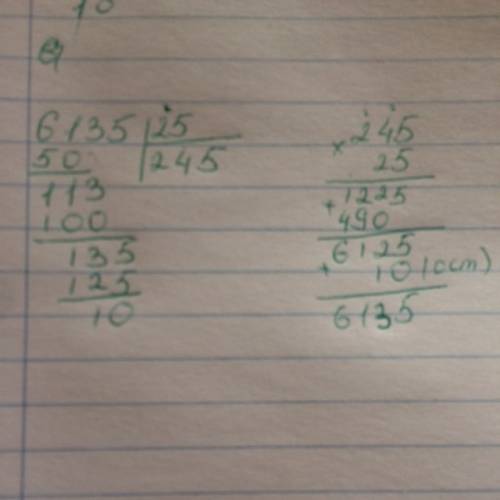 10
6135 | 25
50 | 245
113
100
135
125
10
× 245
25
+ 1225
490
6125
+ 10 (ост)
6135